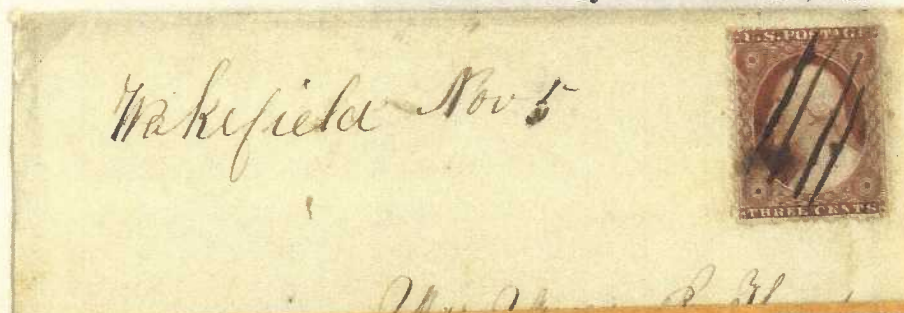 Wakefield Nov 5
U.S. POSTAGE
THREE CENTS